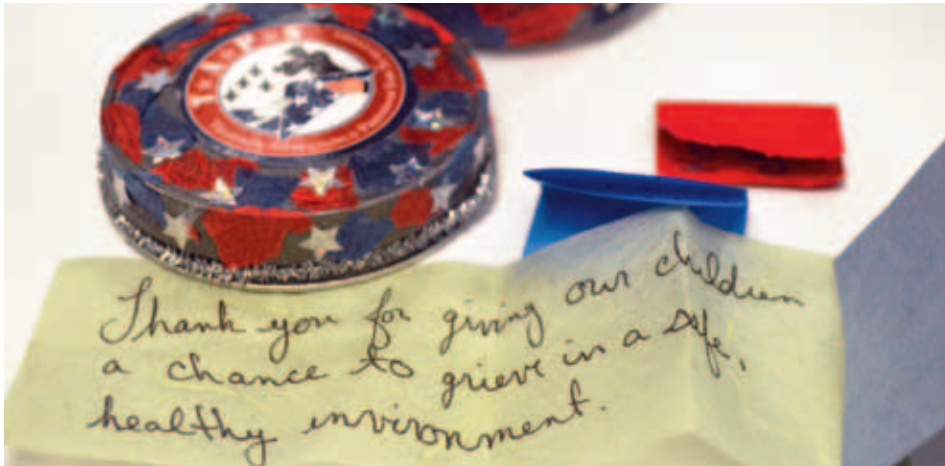 T★A★P★S
Thank you for giving our children
a chance to grieve in a safe,
healthy environment.